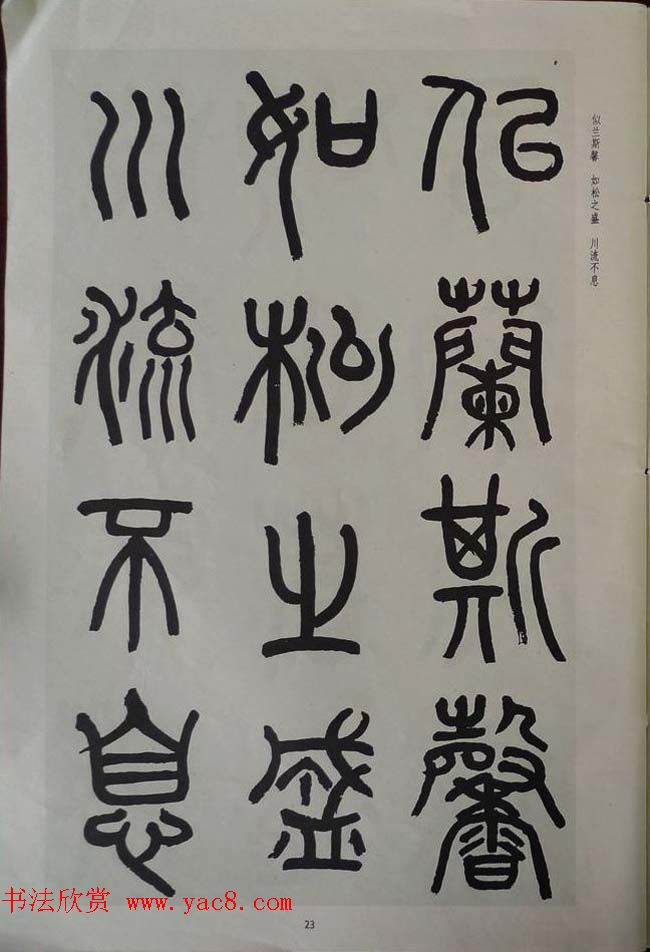 似蘭斯馨
如松之盛
川流不息
似兰斯馨 如松之盛 川流不息
书法欣赏 www.yac8.com
23